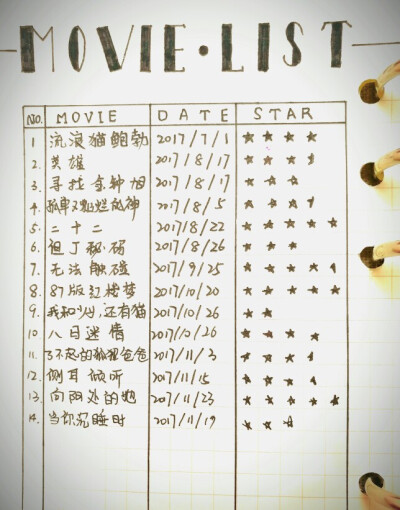 MOVIE·LIST
NO. MOVIE DATE STAR
1 流浪猫鲍勃 2017/7/1
2. 英雄 2017/8/17
3. 寻找 2017/8/17
4. 孤单又灿烂的神 2017/8/5
5. 二十二 2017/8/22
6. 但丁秘码 2017/8/26
7. 无法触碰 2017/9/25
8. 87版红楼梦 2017/10/20
9. 我和 还有猫 2017/10/26
10 八日迷情 2017/10/26
11. 了不起的狐狸爸爸 2017/11/3
12. 侧耳倾听 2017/11/15
13. 向阳处的她 2017/11/23
14. 当你沉睡时 2017/11/19